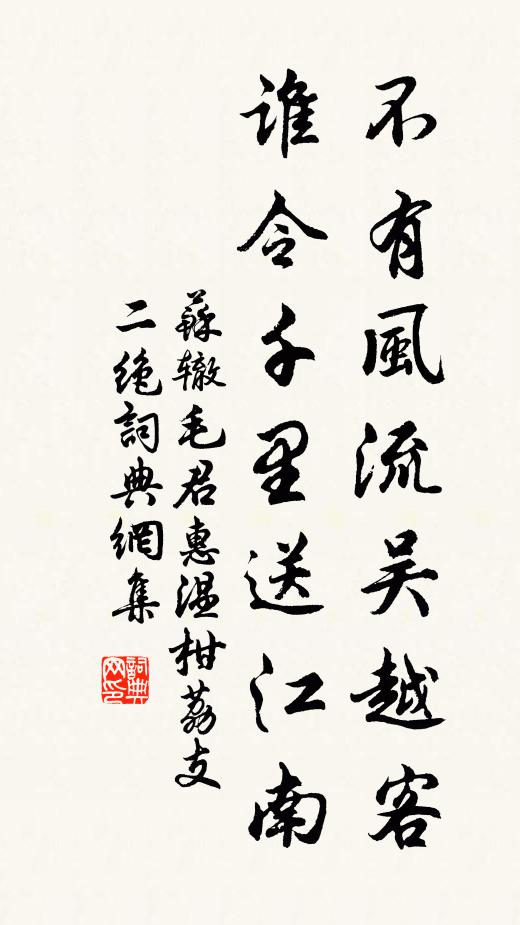 不有風流吳越客
誰令千里送江南
蘇轍毛君惠溫柑荔支
二絕詞典網集
詞典
网印